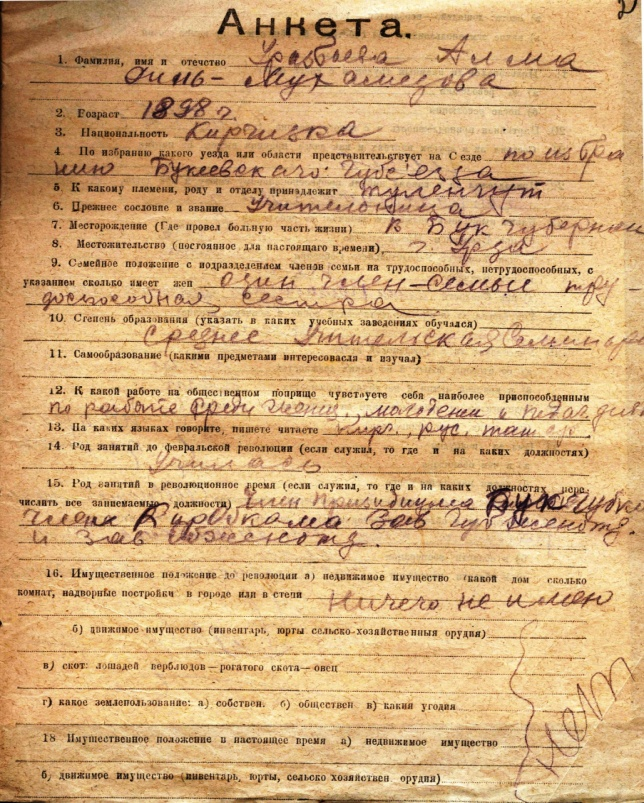 2
Анкета.
1. Фамилия, имя и отечество Уразбаева Алма
Динь-Мухамедова
2. Возраст 1898 г.
3. Национальность Киргизка
4. По избранию какого уезда или области представительствует на С'езде по избра
нию Букеевского Губс'езда
5. К какому племени, роду и отделу принадлежит туленгут
6. Прежнее сословие и звание Учительница
7. Месторождение (Где провел большую часть жизни) в Бук губернии
8. Местожительство (постоянное для настоящего времени) г. Урда
9. Семейное положение с подразделением членов семьи на трудоспособных, нетрудоспособных, с
указанием сколько имеет жен один член-семьи тру-
доспособная сестра
10. Степень образования (указать в каких учебных заведениях обучался)
Среднее Учительская Семинария
11. Самообразование (какими предметами интересовался и изучал)
12. К какой работе на общественном поприще чувствуете себя наиболее приспособленным
по работе среди женщ, молодежи и
13. На каких языках говорите, пишете читаете Кирг., рус, татар
14. Род занятий до февральской революции (если служил, то где и на каких должностях)
Училась
15. Род занятий в революционное время (если служил, то где и на каких должностях пере-
числить все занимаемые должности) Член Призидиума Бук Губко
член Зав Губженотд.
и Зав
16. Имущественное положение до революции а) недвижимое имущество (какой дом сколько
комнат, надворные постройки в городе или в степи Ничего не имею
б) движимое имущество (инвентарь, юрты сельско-хозяйственныя орудия)
в) скот: лошадей верблюдов—рогатого скота—овец
г) какое землепользование: а) собствен. б) обществен в) какия угодия
нет
18 Имущественное положение в настоящее время а) недвижимое имущество
б) движимое имущество (инвентарь, юрты, сельско хозяйствен орудия)